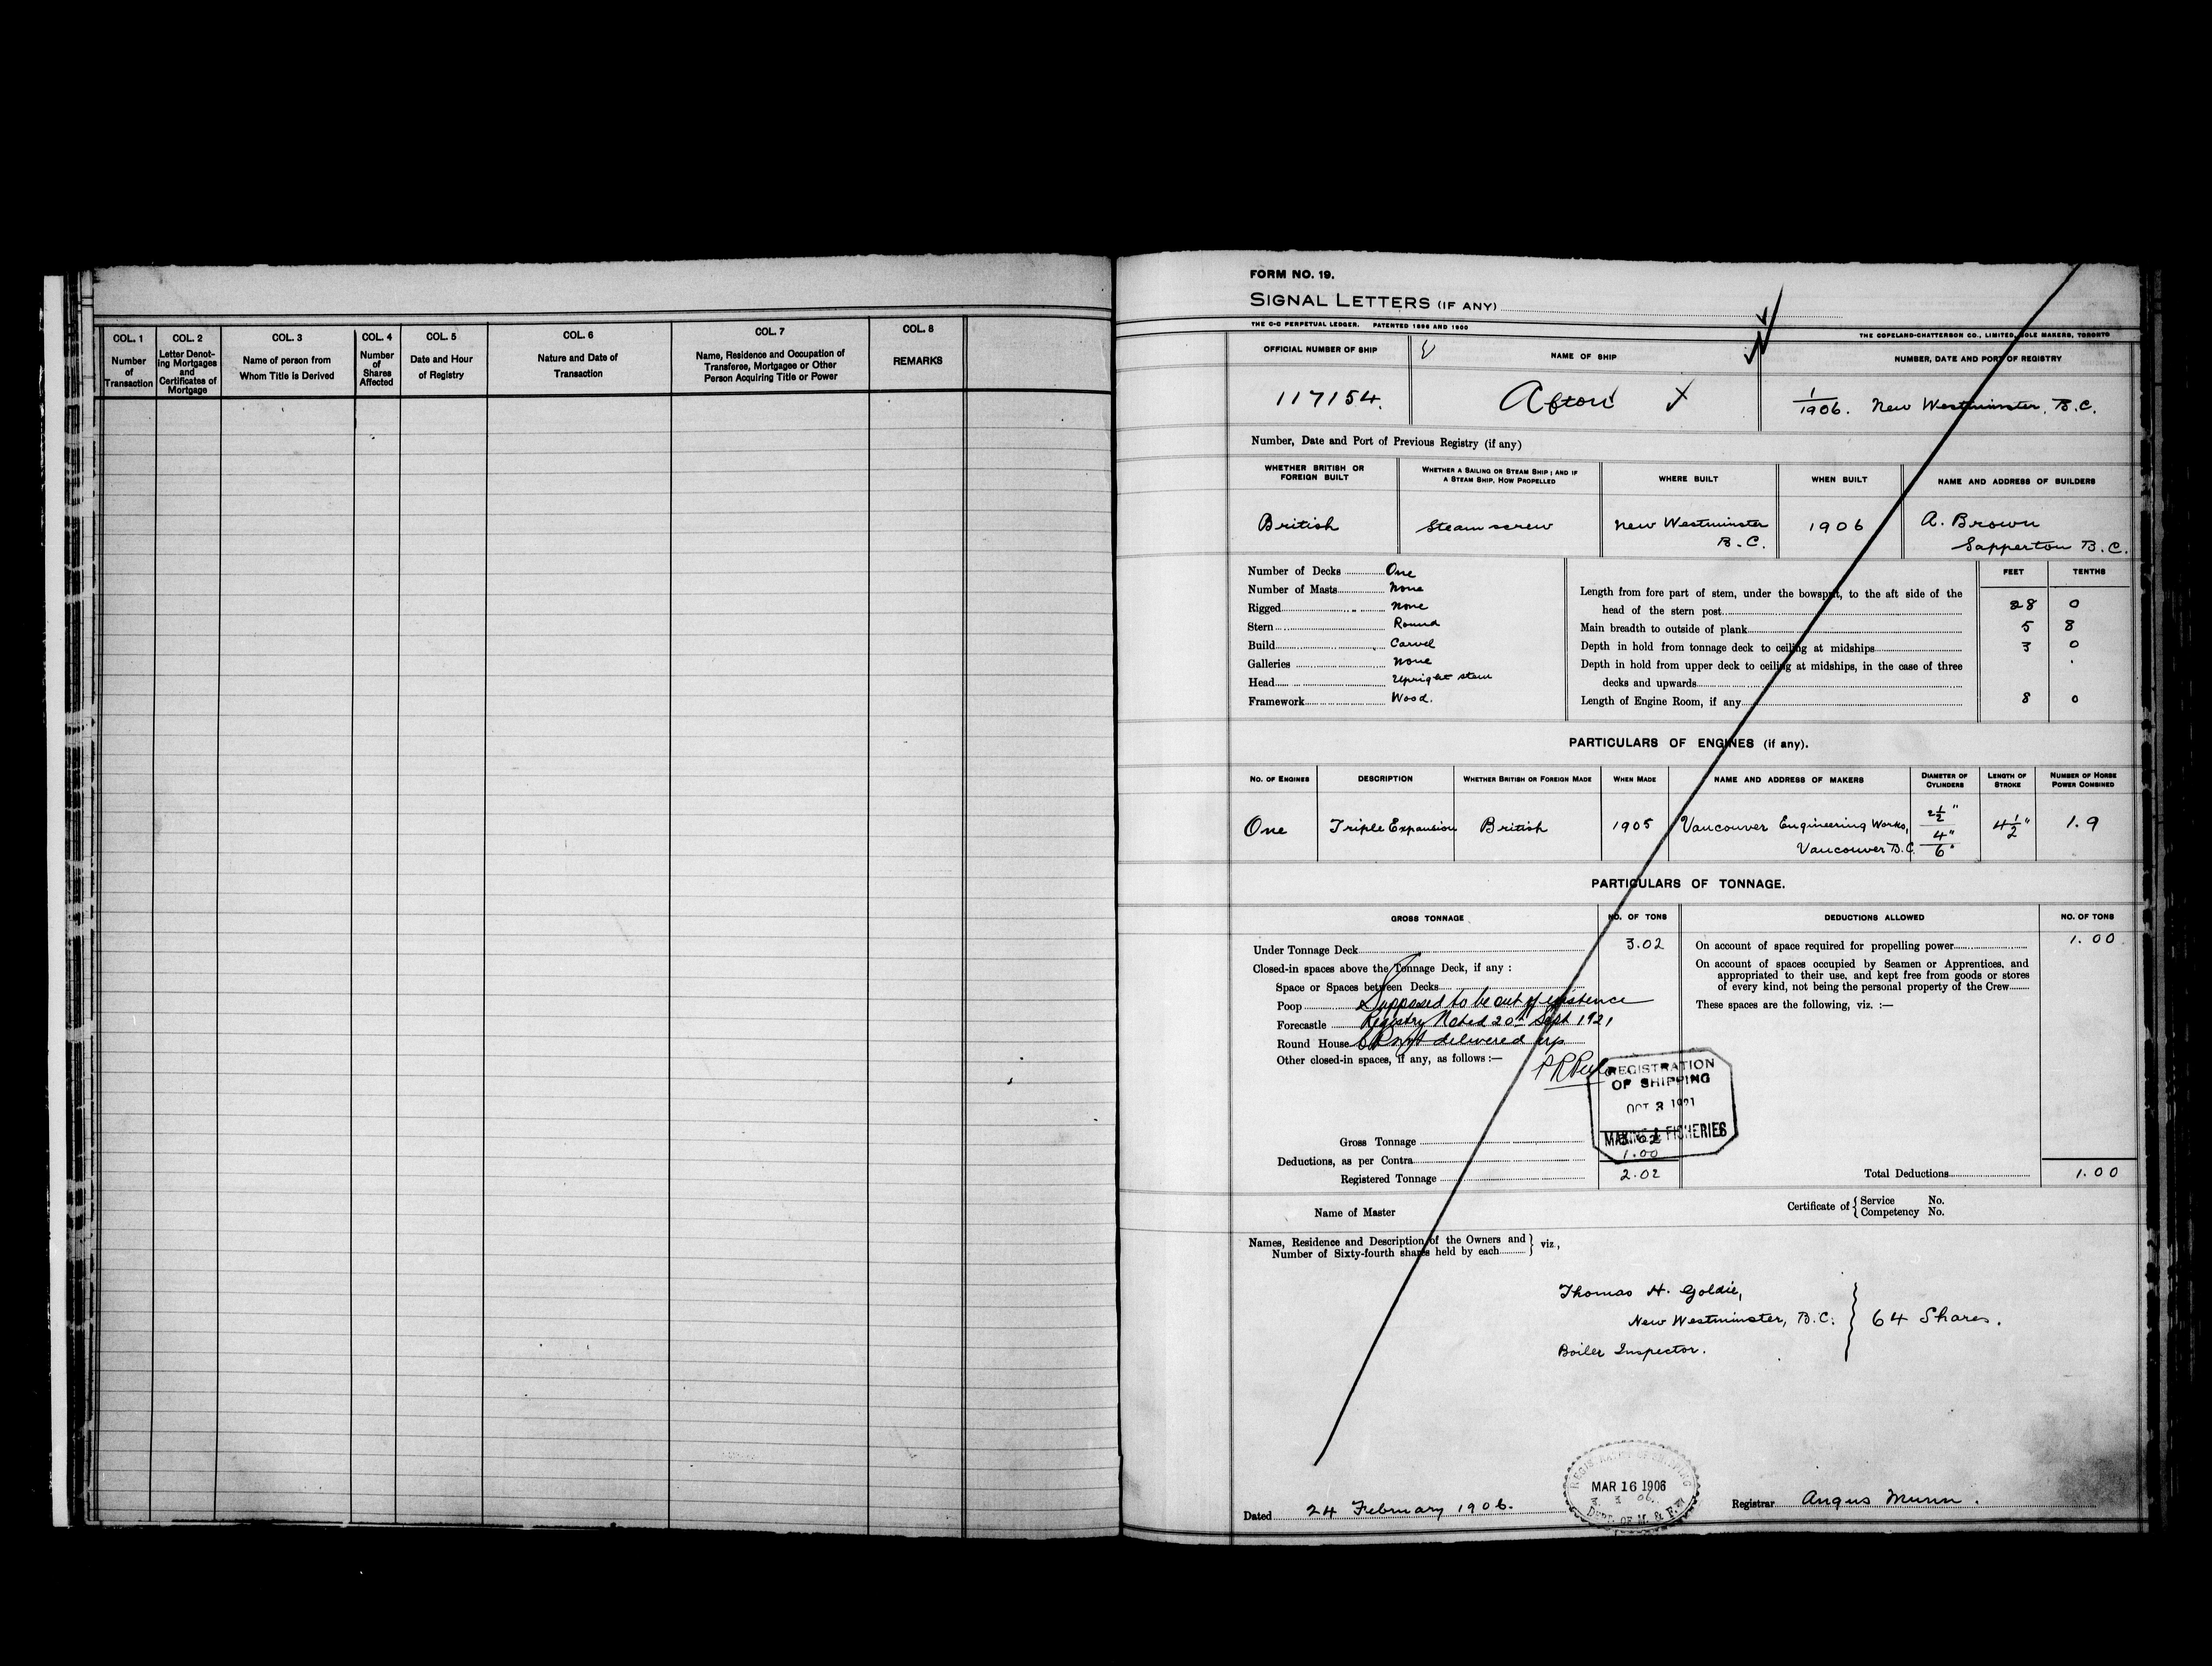 COL. 1
Number
of
Transaction
COL. 2
Letter Denot-
ing Mortgages
and
Certificates of
Mortgage
COL. 3
Name of person from
Whom Title is Derived
COL. 4
Number
of
Shares
Affected
COL. 5
Date and Hour
of Registry
COL. 6
Nature and Date of
Transaction
COL. 7
Name, Residence and Occupation of
Transferee, Mortgagee or Other
Person Acquiring Title or Power
COL. 8
REMARKS
FORM NO. 19.
SIGNAL LETTERS (IF ANY)
THE C-C PERPETUAL LEDGER. PATENTED 1896 AND 1900
THE COPELAND-CHATTERSON CO., LIMITED, SOLE MAKERS, TORONTO
OFFICIAL NUMBER OF SHIP
NAME OF SHIP
NUMBER, DATE AND PORT OF REGISTRY
117154.
Afton
1/1906. New Westminster, B.C.
Number, Date and Port of Previous Registry (if any)
WHETHER BRITISH OR
FOREIGN BUILT
WHETHER A SAILING OR STEAM SHIP; AND IF
A STEAM SHIP, HOW PROPELLED
WHERE BUILT
WHEN BUILT
NAME AND ADDRESS OF BUILDERS
British
Steam screw
New Westminster
B.C.
1906
A. Brown
Sapperton B.C.
Number of Decks One
Number of Masts None
Rigged None
Stern Round
Build Carvel
Galleries None
Head Upright stem
Framework Wood.
FEET TENTHS
Length from fore part of stem, under the bowsprit, to the aft side of the
head of the stern post 28 0
Main breadth to outside of plank 5 8
Depth in hold from tonnage deck to ceiling at midships 3 0
Depth in hold from upper deck to ceiling at midships, in the case of three
decks and upwards
Length of Engine Room, if any 8 0
PARTICULARS OF ENGINES (if any).
NO. OF ENGINES
DESCRIPTION
WHETHER BRITISH OR FOREIGN MADE
WHEN MADE
NAME AND ADDRESS OF MAKERS
DIAMETER OF
CYLINDERS
LENGTH OF
STROKE
NUMBER OF HORSE
POWER COMBINED
One
Triple Expansion
British
1905
Vancouver Engineering Works,
Vancouver B.C.
2 1/2"
4"
6"
4 1/2"
1.9
PARTICULARS OF TONNAGE.
GROSS TONNAGE
NO. OF TONS
DEDUCTIONS ALLOWED
NO. OF TONS
Under Tonnage Deck 3.02
Closed-in spaces above the Tonnage Deck, if any :
Space or Spaces between Decks
Poop
Supposed to be out of existence
Forecastle
Registry Noted 20th Sept 1921
Round House
not delivered up
Other closed-in spaces, if any, as follows :—
On account of space required for propelling power 1.00
On account of spaces occupied by Seamen or Apprentices, and
appropriated to their use, and kept free from goods or stores
of every kind, not being the personal property of the Crew
These spaces are the following, viz. :—
REGISTRATION
OF SHIPPING
OCT 3 1921
MARINE & FISHERIES
Gross Tonnage 3.02
Deductions, as per Contra 1.00
Registered Tonnage 2.02
Total Deductions 1.00
Name of Master
Certificate of { Service No.
Competency No.
Names, Residence and Description of the Owners and
Number of Sixty-fourth shares held by each } viz.,
Thomas H. Goldie,
New Westminster, B.C. } 64 Shares.
Boiler Inspector.
Dated 24 February 1906.
MAR 16 1906
DEPT. OF M. & F.
Registrar Angus Munn.